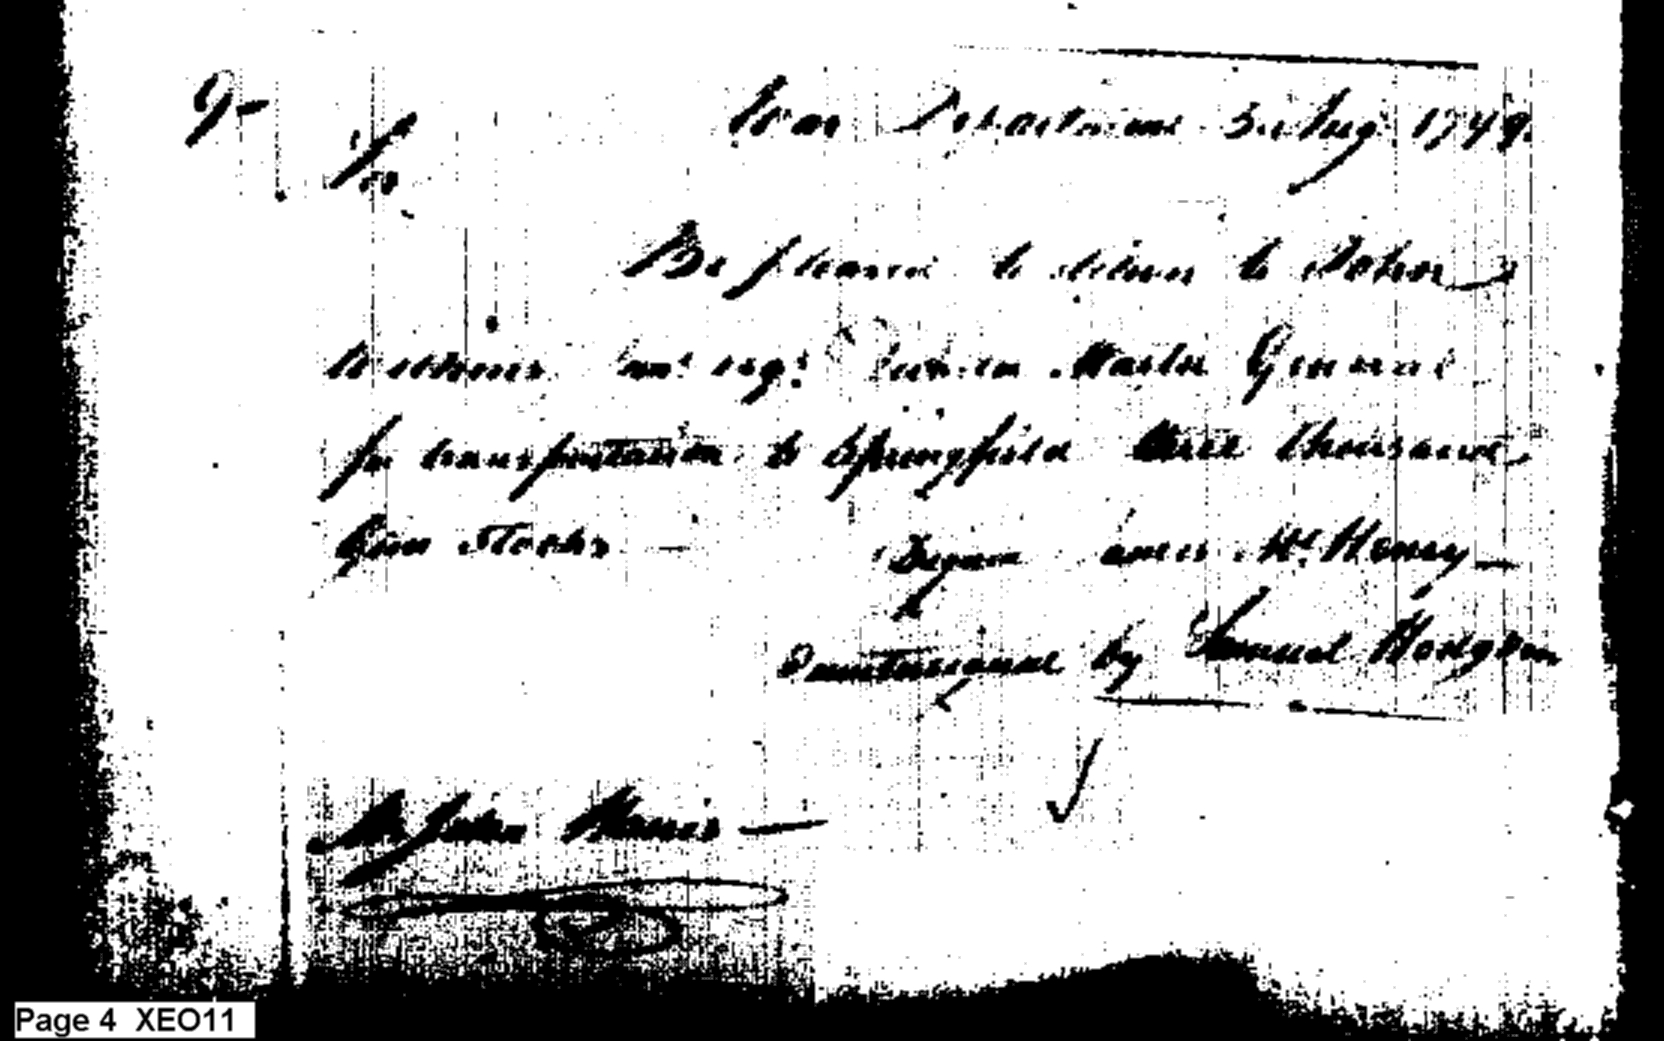 Sir
War Department 5. Aug 1799.
Be pleased to deliver to John
Wilkins Junr esqr Quarter Master General
for transportation to Springfield three thousand
Gun Stocks
Signed James McHenry
Countersigned by Samuel Hodgdon
Mr John Harris
Page 4 XEO11